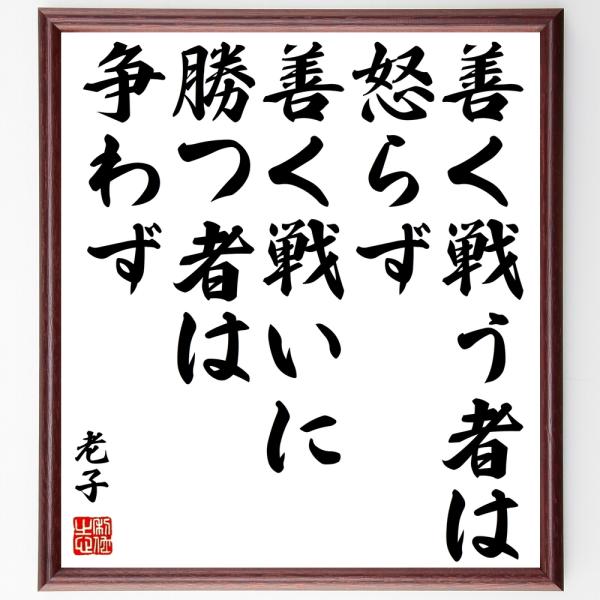 善く戦う者は
怒らず
善く戦いに
勝つ者は
争わず
老子